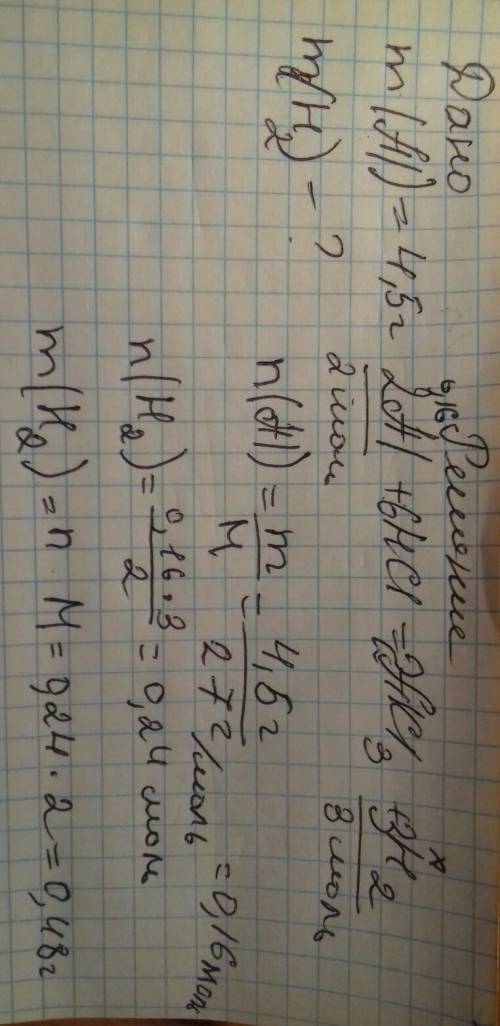 Дано Решение
m(Al) = 4,5г
0,16 x
2Al + 6HCl = 2AlCl3 + 3H2
2 моль 3 моль
m(H2) - ?
n(Al) = m/M = 4,5г/27г/моль = 0,16 моль
n(H2) = 0,16·3/2 = 0,24 моль
m(H2) = n · M = 0,24 · 2 = 0,48г